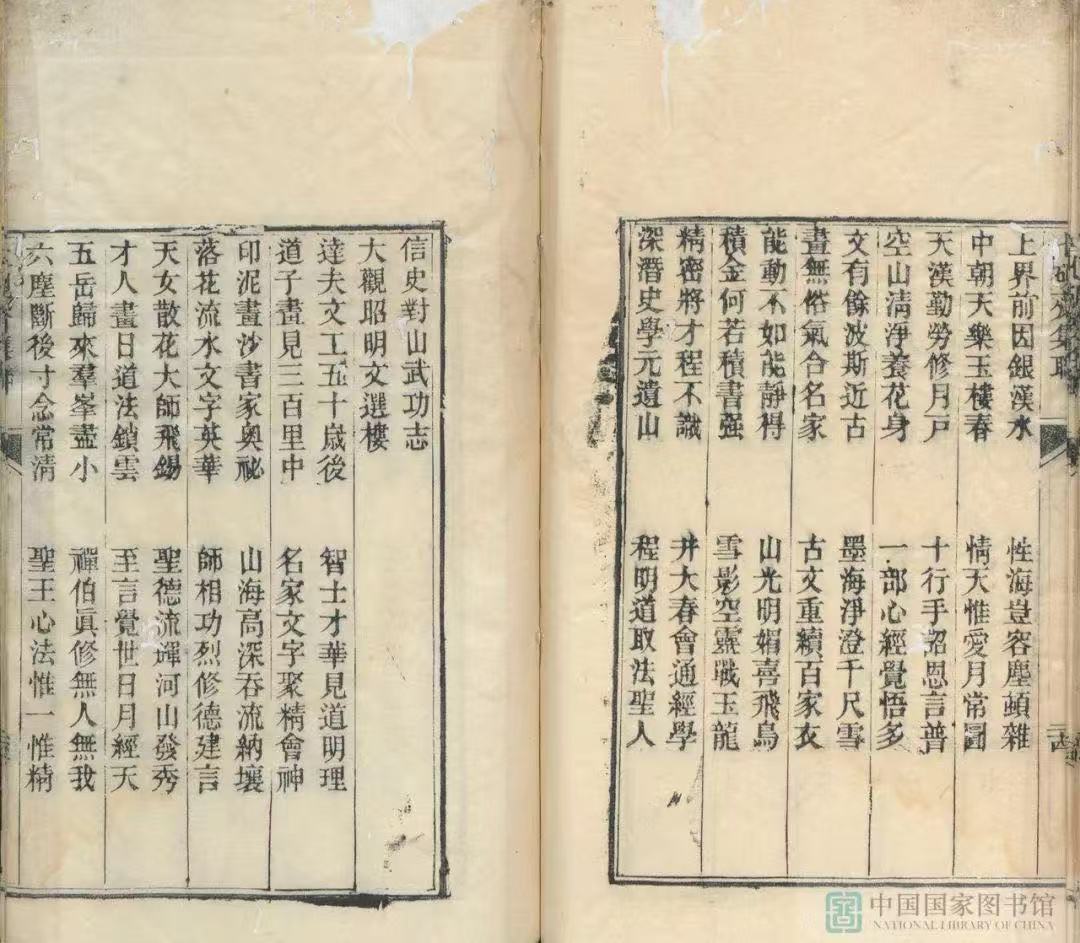 上界前因銀漢水 性海豈容塵頓雜
中朝天樂玉樓春 情天惟愛月常圓
天漢勤勞修月戸 十行手詔恩言普
空山清淨養花身 一部心經覺悟多
文有餘波斯近古 墨海淨澄千尺雪
畫無俗氣合名家 古文重續百家衣
能動不如能靜得 山光明媚喜飛鳥
積金何若積書强 雪影空靈戰玉龍
精密將才程不識 井大春會通經學
深潛史學元遺山 程明道取法聖人
信史對山武功志
大觀昭明文選樓
達夫文工五十歲後 智士才華見道明理
道子畫見三百里中 名家文字聚精會神
印泥畫沙書家奥祕 山海高深吞流納壤
落花流水文字英華 師相功烈修德建言
天女散花大師飛錫 聖德流輝河山發秀
才人畫日道法鎖雲 至言覺世日月經天
五岳歸來羣峯盡小 禪伯眞修無人無我
六塵斷後寸念常清 聖王心法惟一惟精
中国国家图书馆
NATIONAL LIBRARY OF CHINA